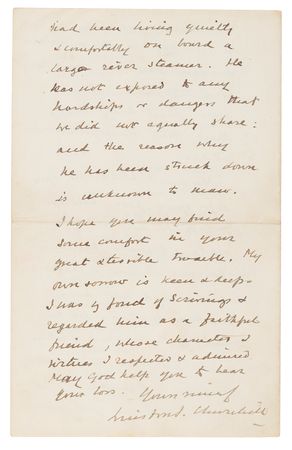 had been living quietly
& comfortably on board a
large river steamer. He
was not exposed to any
hardships or dangers that
we did not equally share:
and the reason why
he has been struck down
is unknown to man.
I hope you may find
some comfort in your
great & terrible trouble. My
own sorrow is keen & deep.
I was fond of Scrivings &
regarded him as a faithful
friend, whose character &
virtues I respected & admired
May God help you to bear
your loss. Yours
Winston S. Churchill